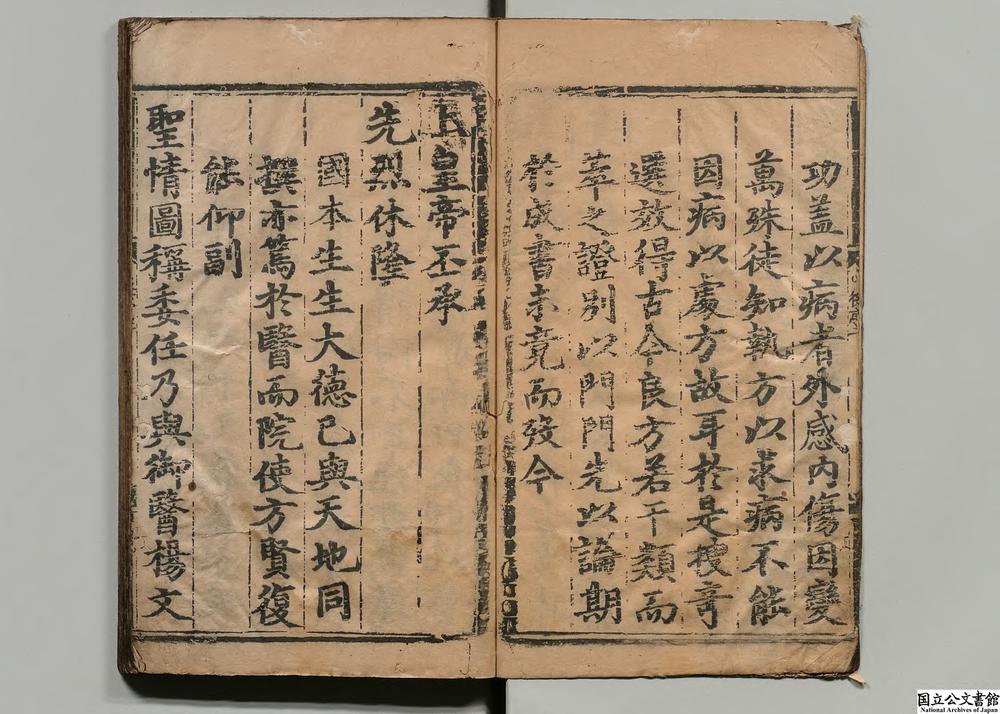 功盖以病者外感内傷因變
萬殊徒知執方以求病不能
因病以處方故耳於是搜竒
選效得古今良方若干類而
萃之證别以門門先以論期
於成書未竟而歿今
上皇帝丕承
先烈休隆
國本生生大德已與天地同
撰亦篤於醫而院使方賢復
能仰副
聖情圖稱委任乃與御醫楊文
国立公文書館
National Archives of Japan